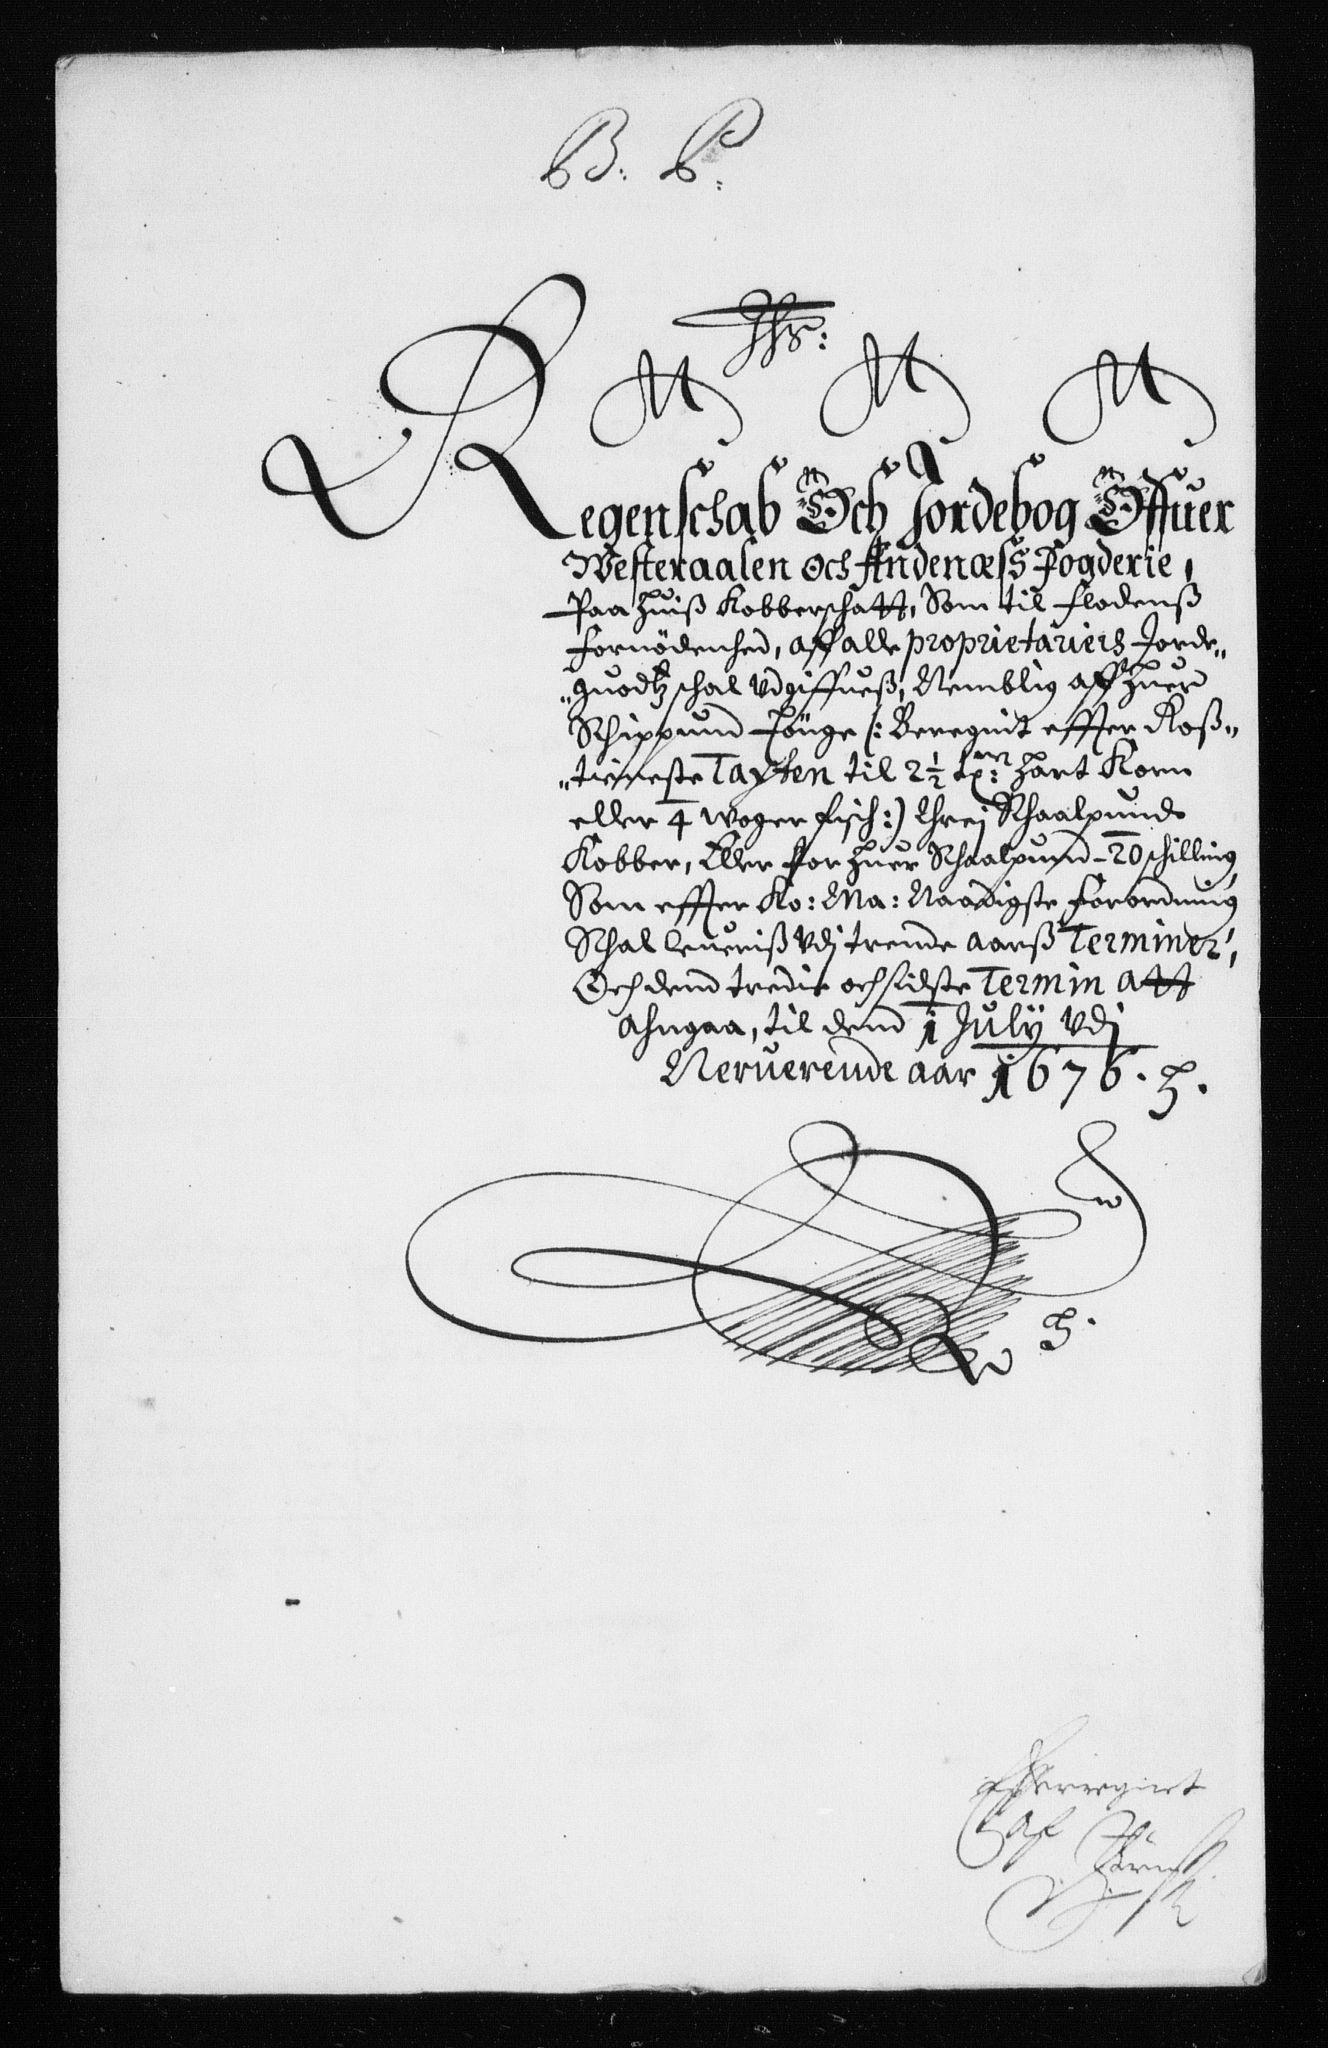 B. P.
Jhs:
Regenschab Och Jordebog Offuer
Westeraalen och Andenæss Fogderie,
Paa huiß Kobberschatt, Som til Flodenß
Fornödenhed, aff alle proprietariers Jorde„
„guodtz schal vdgiffueß, Nemblig aff huer
Schippund Tönge (: Beregnit effter Roß„
„tieneste Taxten til 2½ tr: hart Korn
eller 4 woger fisch:) threj Schaalpund
Kobber, Eller for huer Schaalpund 20 schilling,
Som effter Ko: Ma: Naadigste Forordning
Schal leueriß vdj trende aarß Terminer,
Och dend tredie och sidste Termin att
ahngaa, til dend 1 July vdj
Neruerende aar 1676.
Effterregnet
af